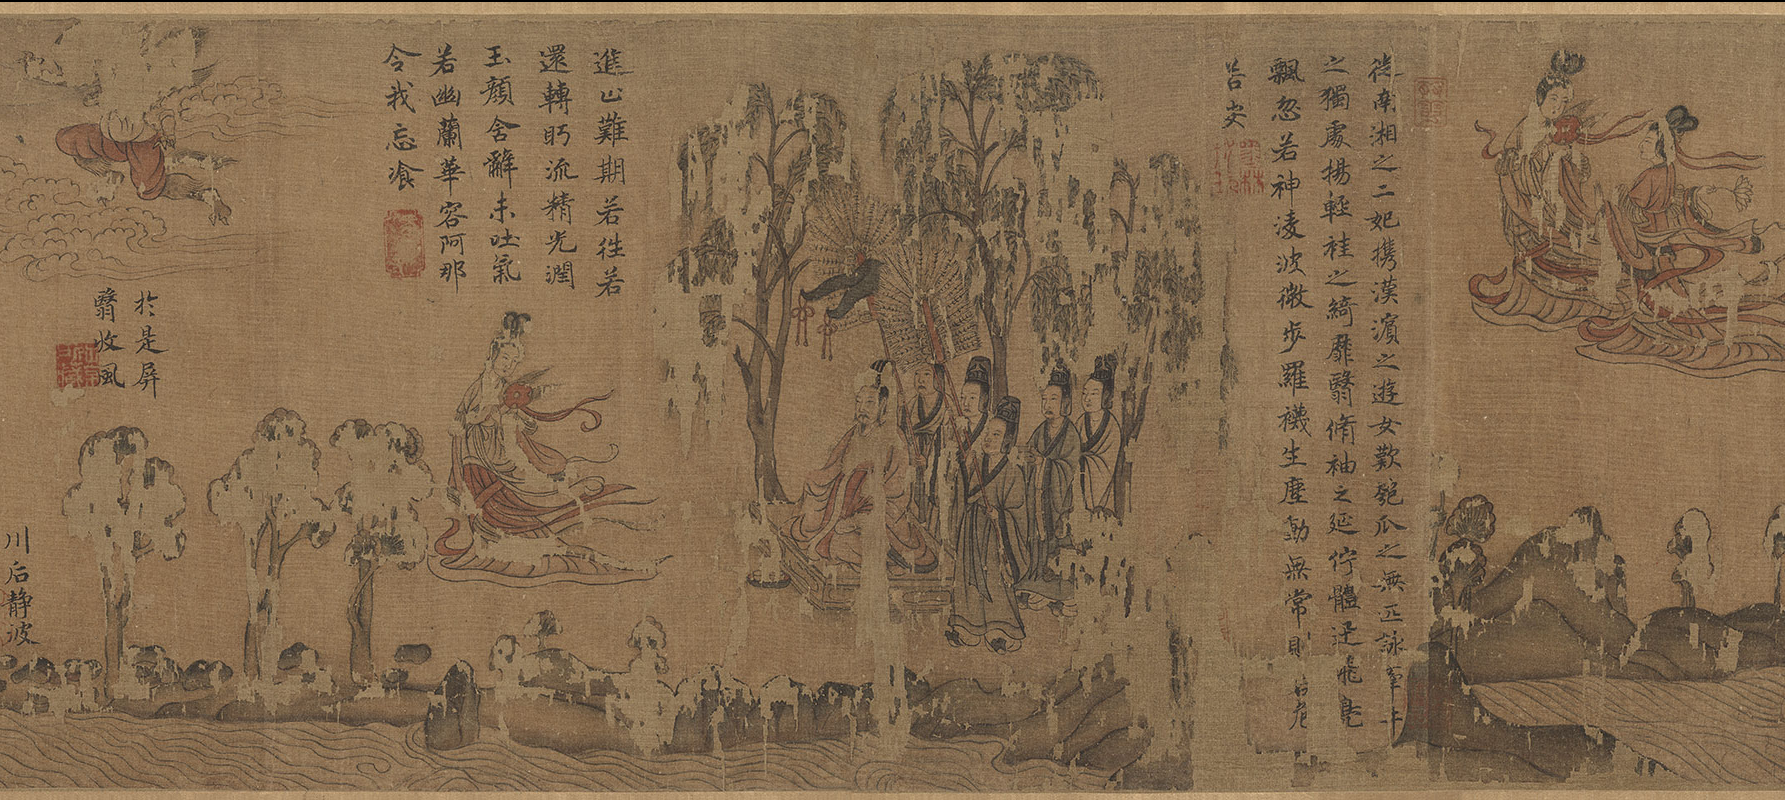 從南湘之二妃携漢濱之遊女歎匏瓜之無匹詠牽牛
之獨處揚輕袿之綺靡翳脩袖之延佇體迅飛鳧
飄忽若神淩波微步羅襪生塵動無常則若危
若安
進止難期若往若
還轉眄流精光潤
玉顏含辭未吐氣
若幽蘭華容阿那
令我忘飡
於是屏
翳收風
川后静波